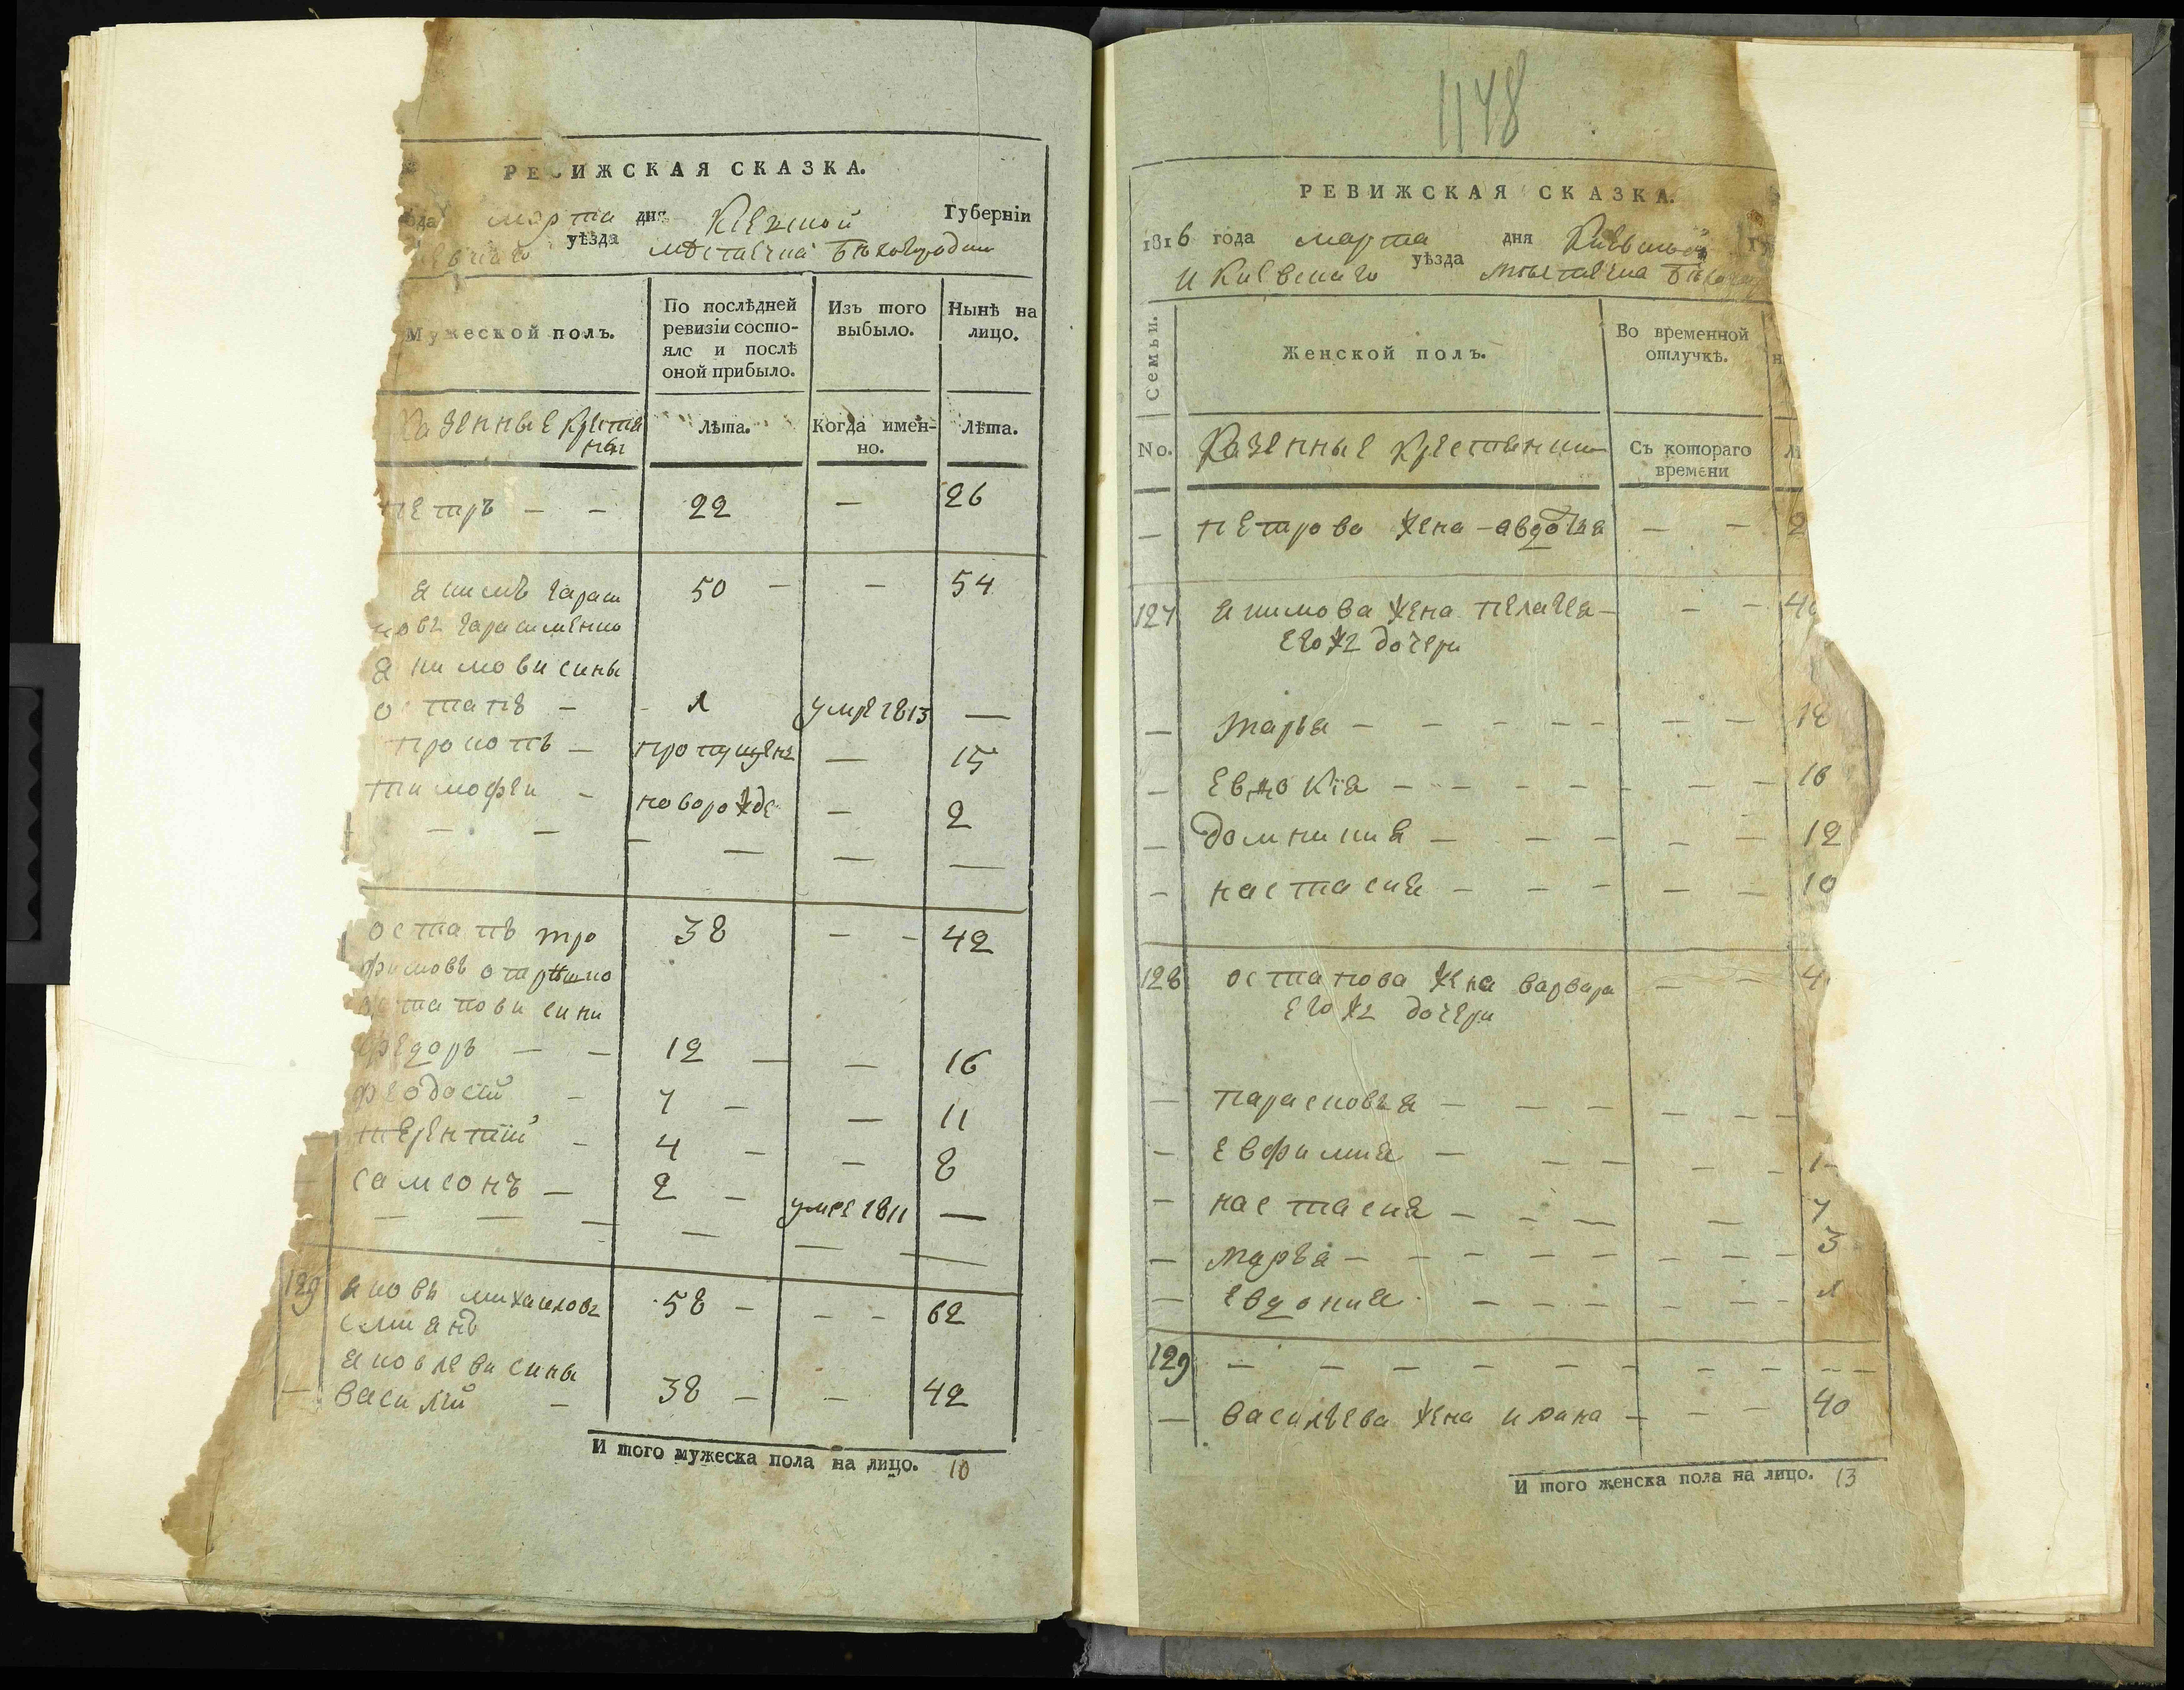 РЕВИЖСКАЯ СКАЗКА.
года марта дня Киевской Губерніи
уѣзда местечка Белгородки
Мужеской полъ.
По послѣдней ревизіи состо-
яло и послѣ
оной прибыло.
Изъ того
выбыло.
Нынѣ на
лицо.
Казенные крестя
не
Лѣта.
Когда имен-
но.
Лѣта.
петръ — — 22 — 26
якимъ гараси 50 — — 54
мовъ гарасименко
якимови сины
остапъ — 1 умре 1813 —
прокопъ — пропущенъ — 15
тимофеи — новорожде — 2
остапъ тро 38 — — 42
фимовъ
остапови сини
федоръ — — 12 — — 16
феодосій — 7 — — 11
терентій — 4 — — 8
самсонъ — 2 — умре 1811 —
129 яковъ михаиловъ 58 — — — 62
яковлеви сины
— василій — 38 — — 42
И того мужеска пола на лицо. 10
1178
РЕВИЖСКАЯ СКАЗКА.
1816 года марта дня Киевской
и Киевскаго уѣзда местечка
Семьи.
Женской полъ.
Во временной
отлучкѣ.
No.
Казенные крестянки
Съ котораго
времени
— петрова жена — авдотья — — 2
127 якимова жена пелагея — — — 4
его жъ дочери
— марья — — — — — — — 18
— евдокія — — — — — — — 16
— домникия — — — — — 12
— настасия — — — — — 10
128 остапова жена варвара — — 4
его жъ дочери
— парасковья — — — — — — —
— евфимия — — — — — 1
— настасия — — — — 7
— марья — — — — — — — — 3
— евдокия — — — — — — — 1
129 — — — — — — — — — —
— васильева жена ирина — — — 40
И того женска пола на лицо. 13